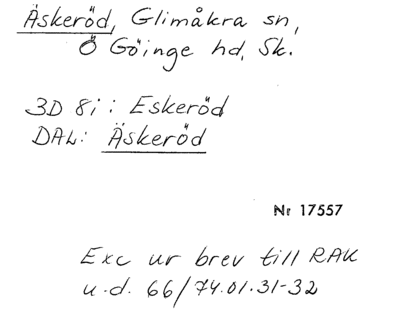 Äskeröd, Glimåkra sn,
Ö Göinge hd, Sk.
3D 8i: Eskeröd
DAL: Äskeröd
Nr 17557
Exc ur brev till RAK
u.d. 66/74.01.31-32